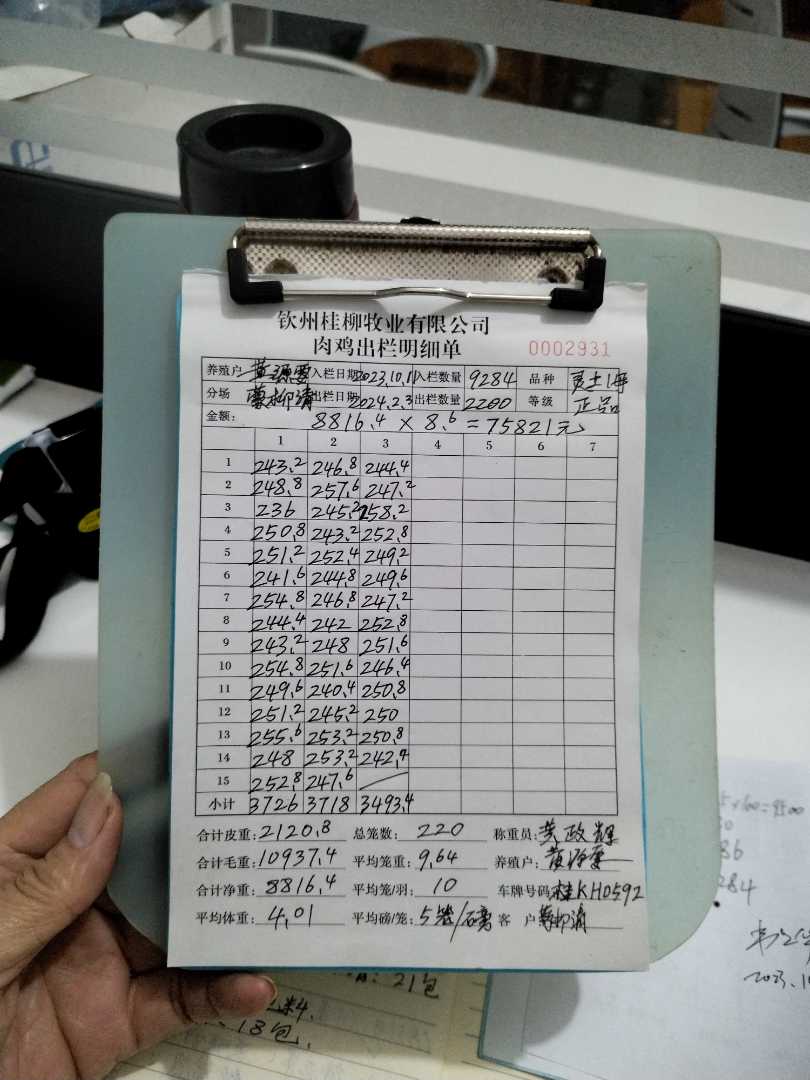 钦州桂柳牧业有限公司
肉鸡出栏明细单 0002931
养殖户 入栏日期 2023.10.1 入栏数量 9284 品种
分场 蒙柳清 出栏日期 2024.2.3 出栏数量 2200 等级 正品
金额: 8816.4 × 8.6 = 75821元
1 2 3 4 5 6 7
1 243.2 246.8 244.4
2 248.8 257.6 247.2
3 236 245.2 258.2
4 250.8 243.2 252.8
5 251.2 252.4 249.2
6 241.6 244.8 249.6
7 254.8 246.8 247.2
8 244.4 242 252.8
9 243.2 248 251.6
10 254.8 251.6 246.4
11 249.6 240.4 250.8
12 251.2 245.2 250
13 255.6 253.2 250.8
14 248 253.2 242.4
15 252.8 247.6
小计 3726 3718 3493.4
合计皮重: 2120.8 总笼数: 220 称重员: 黄政辉
合计毛重: 10937.4 平均笼重: 9.64 养殖户:
合计净重: 8816.4 平均笼/羽: 10 车牌号码 桂KH0592
平均体重: 4.01 平均磅/笼: 5笼/磅 客户
21包
料.
18包.
×60=9500
86
284
2023.10